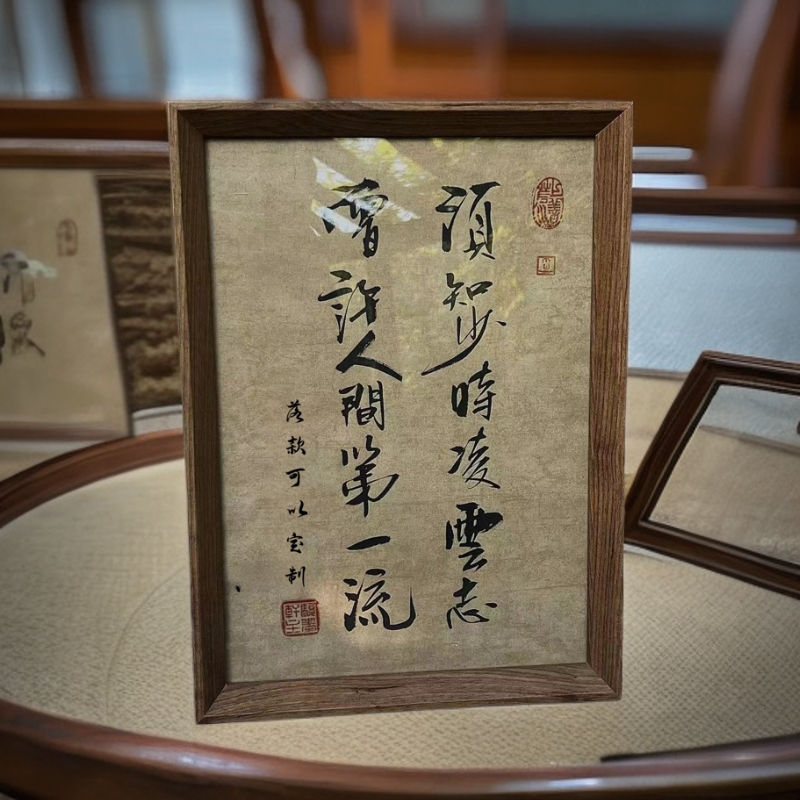 須知少時凌雲志
曾許人間第一流
落款可以定制